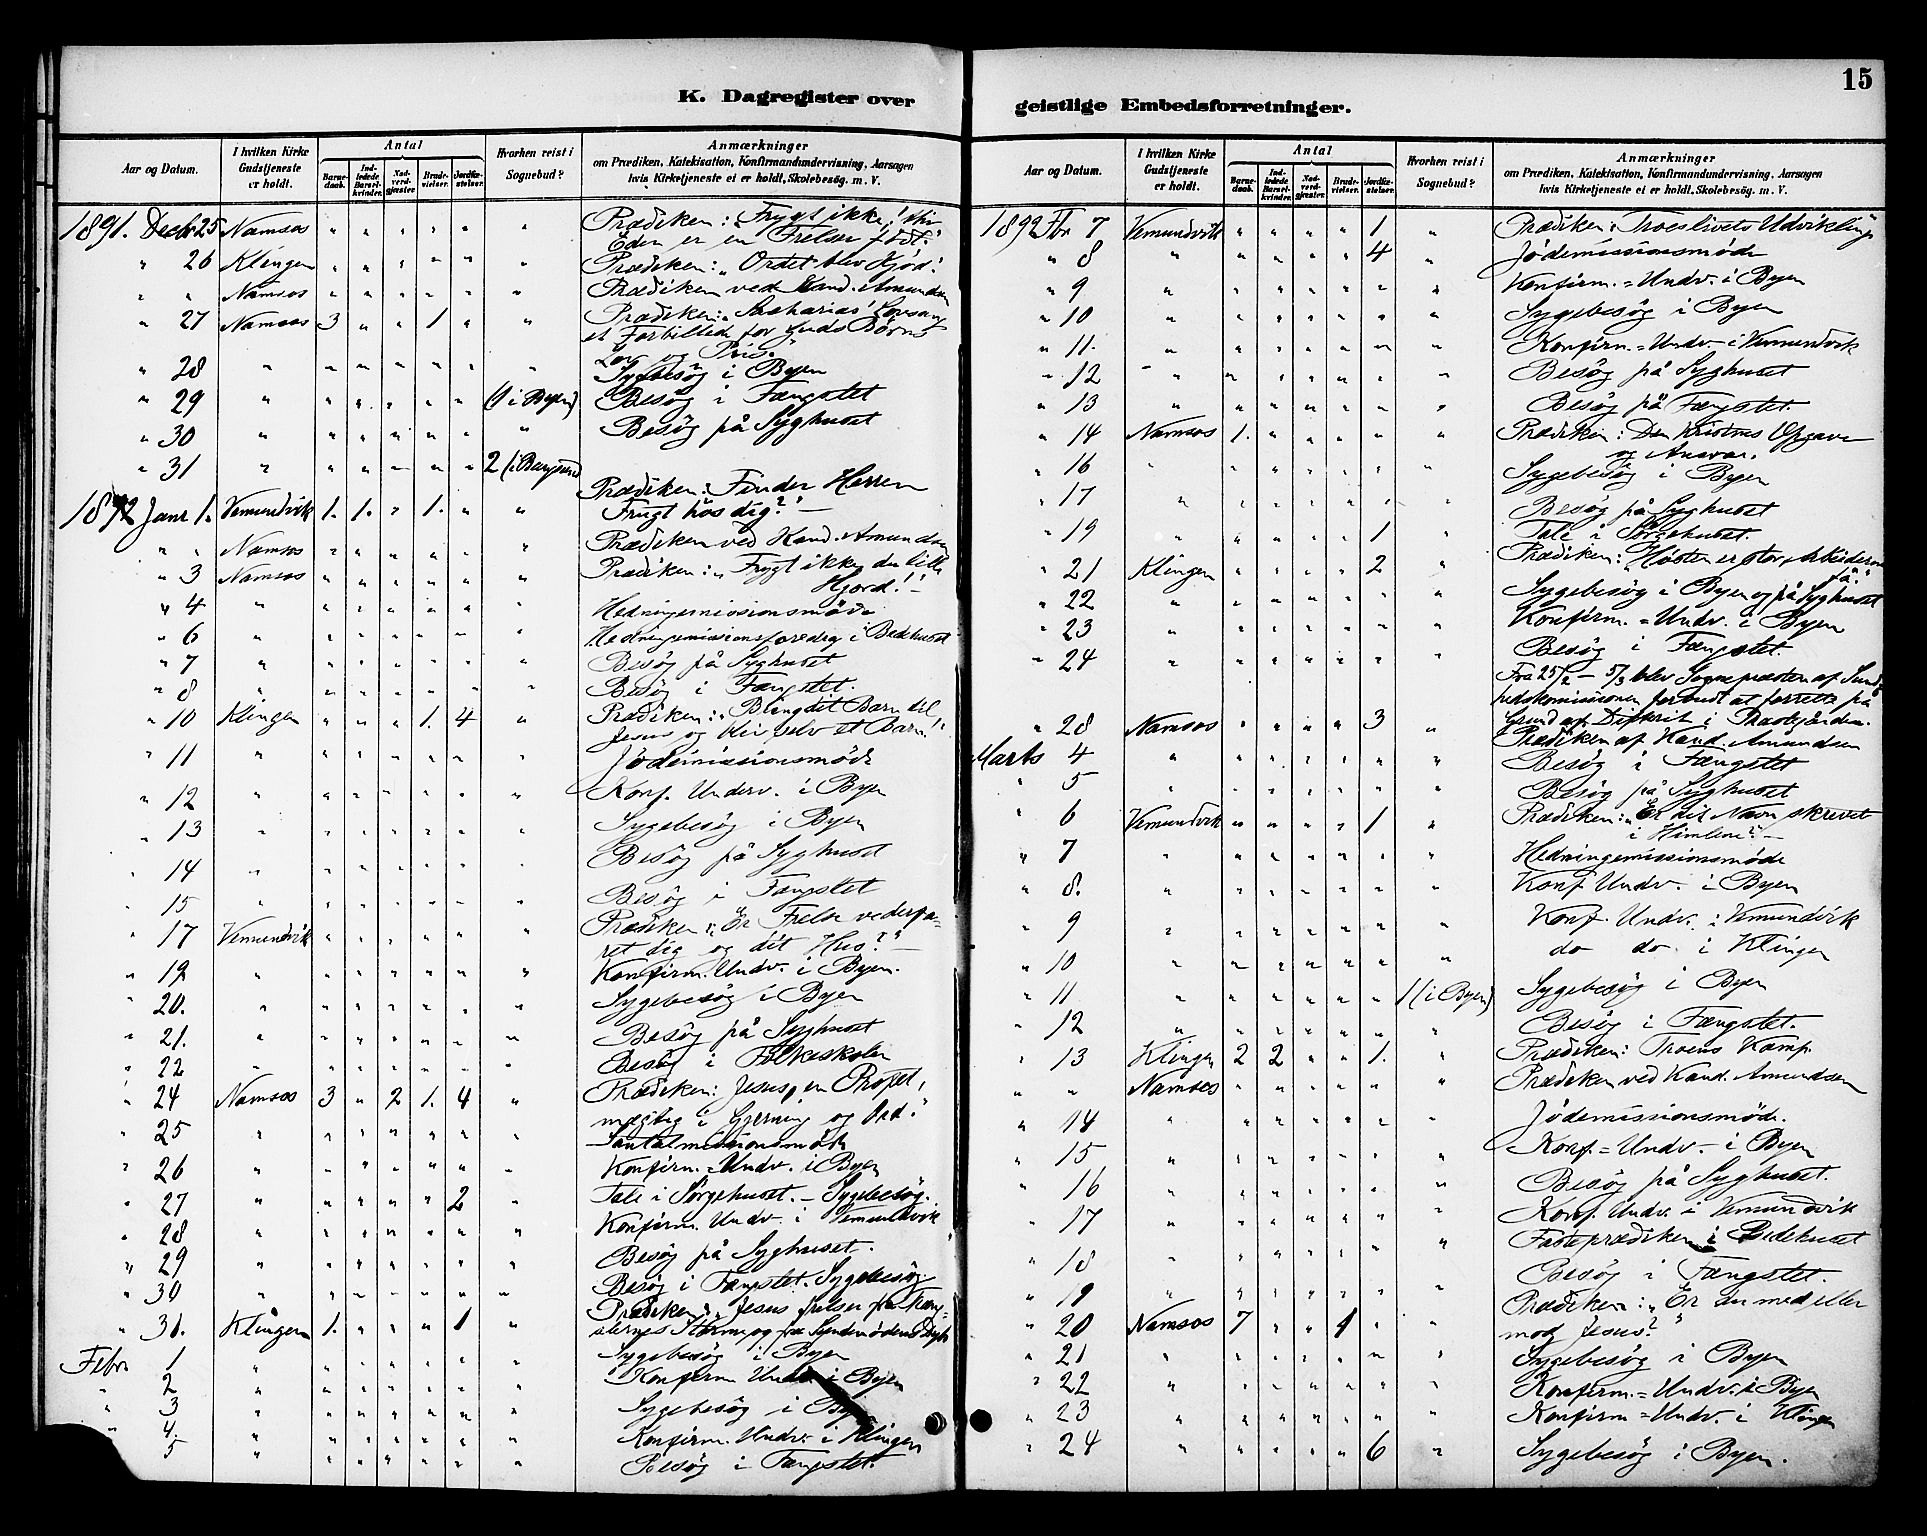 K. Dagregister over
Aar og Datum. I hvilken Kirke Gudstjeneste er holdt. Antal Barnedaab. Indledede Barselkvinder. Nadverdgjæster. Brudevielser. Jordfæstelser. Hvorhen reist i Sognebud? Anmærkninger om Prædiken, Katekisation, Konfirmandundervisning, Aarsagen hvis Kirketjeneste ei er holdt, Skolebesøg. m. V.
1891. Decbr 25 Namsos " " " " " " Prædiken: "Frygt ikke!
Eder er en Frelser født."
" 26 Klingen " " " " " " Prædiken: "Ordet blev Kjød."
" " Namsos " " " " " " Prædiken ved Kand. Amundsen
" 27 Namsos 3 " " 1. " " Prædiken: "Sacharias' Lovsang
et Forbillede for Guds Børns
Lov og Pris."
" 28 " " " " " " " Sygebesøg i Byen
" 29 " " " " " " (1 i Byen) Besøg i Fængslet
" 30 " " " " " " " Besøg på Syghuset
" 31 " " " " " " 2 (i Bangsund)
1892 Janr 1. Vemundvik 1. 1. " 1. " " Prædiken: "Finder Herren
Frugt hos dig?" –
" " Namsos " " " " " " Prædiken ved Kand. Amundsen
" 3 Namsos " " " " " " Prædiken: "Frygt ikke, du lille
Hjord!" –
" 4 " " " " " " " Hedningemissionsmøde
" 6 " " " " " " " Hedningemissionsforedrag i Bedehuset
" 7 " " " " " " " Besøg på Syghuset
" 8 " " " " " " " Besøg i Fængslet.
" 10 Klingen " " " 1. 4 " Prædiken: "Bring dit Barn til
Jesus og bliv selv et Barn!"
" 11 " " " " " " " Jødemissionsmøde
" 12 " " " " " " " Konf. Underv. i Byen
" 13 " " " " " " " Sygebesøg i Byen
" 14 " " " " " " " Besøg på Syghuset
" 15 " " " " " " " Besøg i Fængslet
" 17 Vemundvik " " " " " " Prædiken: "Er Frelse vederfa-
ret dig og dit Hus?" –
" 19 " " " " " " " Konfirm. Undv. i Byen.
" 20. " " " " " " " Sygebesøg i Byen
" 21. " " " " " " " Besøg på Syghuset
" 22 " " " " " " " Besøg i Folkeskolen
" 24 Namsos 3 " 2 1. 4 " Prædiken: "Jesus, en Profet,
mægtig i Gjerning og Ord."
" 25 " " " " " " " Santalmissionsmøde
" 26 " " " " " " " Konfirm.=Undv. i Byen
" 27 " " " " " 2 " Tale i Sørgehuset. – Sygebesøg.
" 28 " " " " " " " Konfirm. Undv. i Vemundvik
" 29 " " " " " " " Besøg på Syghuset.
" 30 " " " " " " " Besøg i Fængslet. Sygebesøg.
" 31. Klingen 1. " " " 1 " Prædiken: "Jesus frelser fra Træng-
slernes Storme og fra Syndenødens Dyb
Febr 1 " " " " " " " Sygebesøg i Byen
" 2 " " " " " " " Konfirm Undv i Byen
" 3 " " " " " " " Sygebesøg i Byen
" 4. " " " " " " " Konfirm. Undv. i Klingen
5 " " " " " " " Besøg i Fængslet.
15
geistlige Embedsforretninger.
Aar og Datum. I hvilken Kirke Gudstjeneste er holdt. Antal Barnedaab. Indledede Barselkvinder. Nadverdgjæster. Brudevielser. Jordfæstelser. Hvorhen reist i Sognebud? Anmærkninger om Prædiken, Katekisation, Konfirmandundervisning, Aarsagen hvis Kirketjeneste ei er holdt, Skolebesøg. m. V.
1892 Fbr 7 Vemundvik " " " " 1 " Prædiken: Troeslivets Udvikling
" 8 " " " " " 4 " Jødemissionsmøde
" 9 " " " " " " " Konfirm.=Undv. i Byen
" 10 " " " " " " " Sygebesøg i Byen
" 11. " " " " " " " Konfirm.=Undv. i Vemundvik
" 12 " " " " " " " Besøg på Syghuset
" 13 " " " " " " " Besøg på Fængslet.
" 14 Namsos 1. " " " " " Prædiken: Den Kristnes Opgave
og Ansvar.
" 16 " " " " " " " Sygebesøg i Byen
" 17 " " " " " " " Besøg på Syghuset
" 19 " " " " " 1 " Tale i Sørgehuset.
" 21 Klingen " " " " 2 " Prædiken: "Høsten er stor, Arbeiderne
få."
" 22 " " " " " " " Sygebesøg i Byen og på Syghuset
" 23 " " " " " " " Konfirm.=Undv. i Byen
" 24 " " " " " " " Besøg i Fængslet.
Fra 25/2 – 5/3 blev Sognepræsten af Sund-
hedskomissionen forbudt at forrette på
Grund af Difterit i Præstegården.
" 28 Namsos " " " " 3 " Prædiken af Kand. Amundsen
Marts 4 " " " " " " " Besøg i Fængslet
" 5 " " " " " " " Besøg på Syghuset
" 6 Vemundvik " " " " 1 " Prædiken: "Er dit Navn skrevet
i Himlene?" –
" 7 " " " " " " " Hedningemissionsmøde
" 8. " " " " " " " Konf. Undv. i Byen
" 9 " " " " " " " Konf. Undv. i Vemundvik
" 10 " " " " " " " do do. i Klingen
" 11 " " " " " " 1 (i Byen) Sygebesøg i Byen
" 12 " " " " " " " Besøg i Fængslet.
" 13 Klingen 2 2 " " 1. " Prædiken: Troens Kamp.
" " Namsos " " " " " " Prædiken ved Kand. Amundsen
" 14 " " " " " " " Jødemissionsmøde.
" 15 " " " " " " " Konf.=Undv. i Byen
" 16 " " " " " " " Besøg på Syghuset.
" 17 " " " " " " " Konf. Undv. i Vemundvik
" 18 " " " " " " " Fasteprædiken i Bedehuset
" 19 " " " " " " " Besøg i Fængslet.
" 20 Namsos 7 " " 1 " " Prædiken: "Er du med eller
mod Jesus?"
" 21 " " " " " " " Sygebesøg i Byen
" 22 " " " " " " " Konfirm.=Undv. i Byen
" 23 " " " " " " " Konfirm=Undv. i Klingen
" 24 " " " " " 6 " Sygebesøg i Byen.